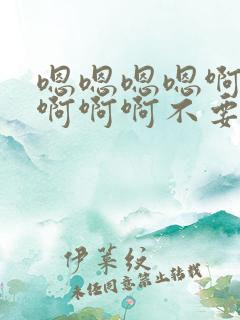 嗯嗯嗯嗯啊
啊啊啊不要
伊莱纹
未经同意禁止转载